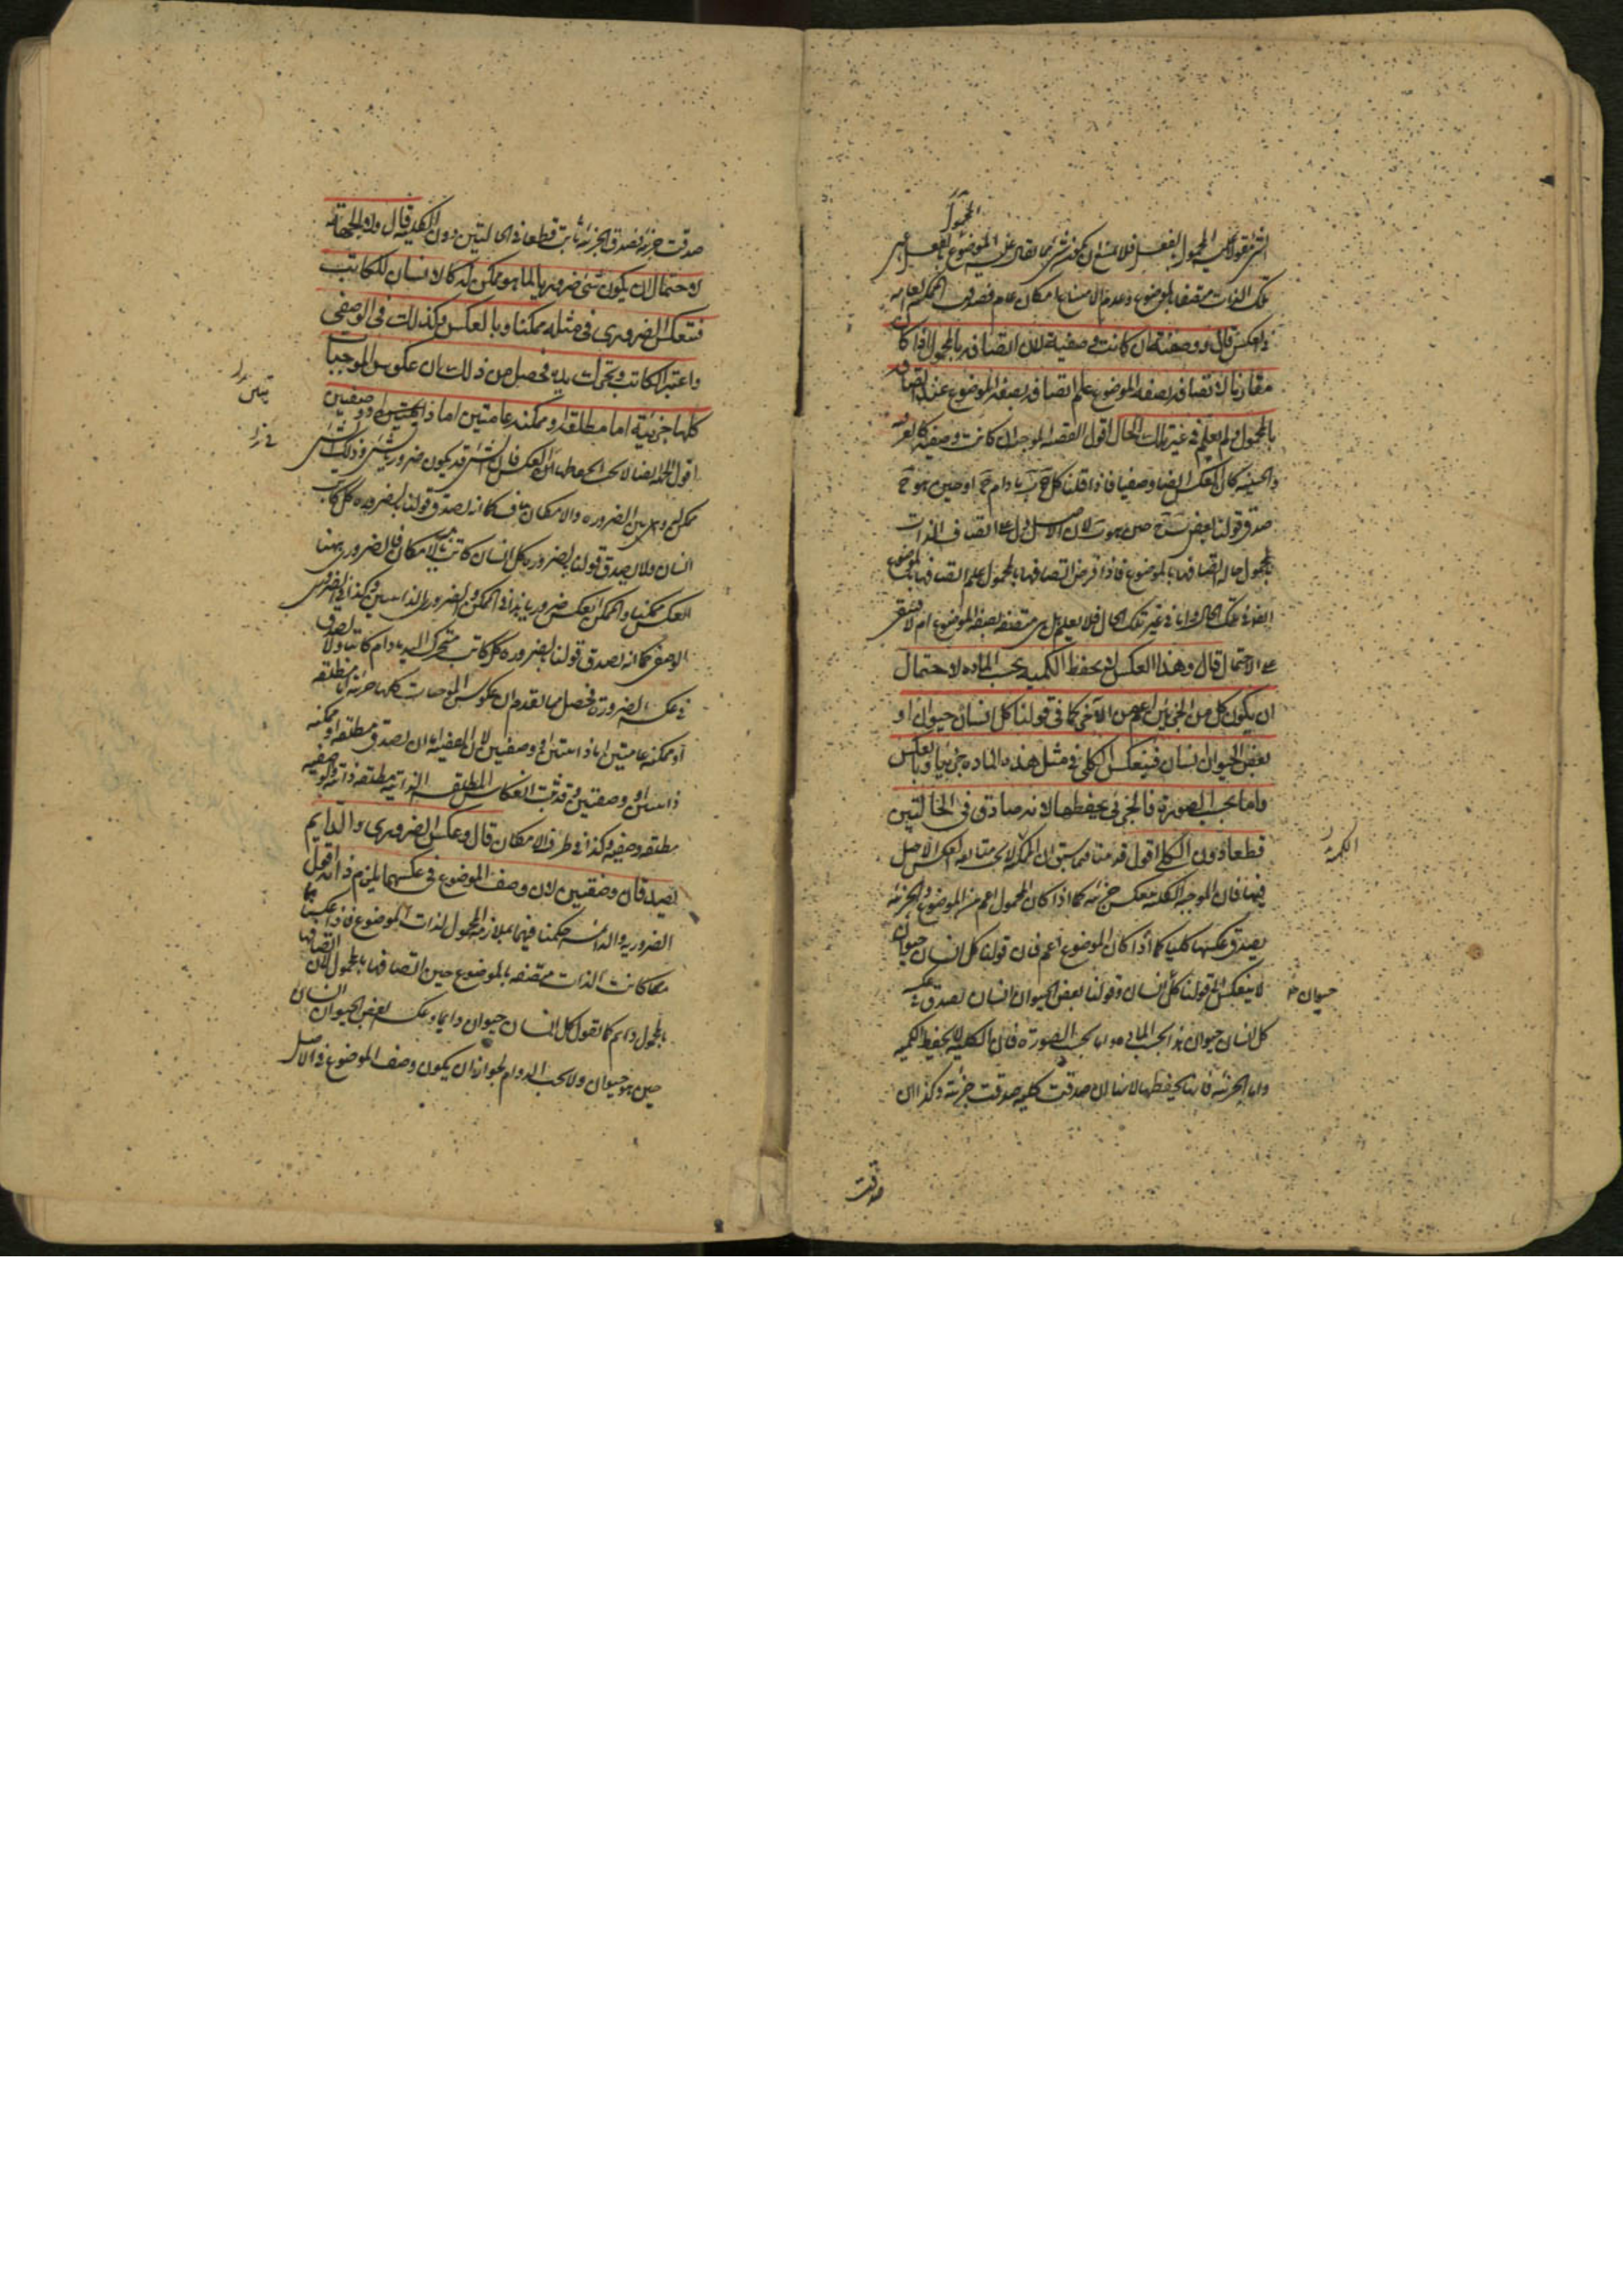 المحمول
تلك الذات متصفة بالموضوع وعدم الامتناع امكان عام فصدق الممكنة العامه
في العكس قال ووصفية ان كانت وصفية لان اتصافه بالمحمول اذا كان
مقارنا لاتصافه بصفة الموضوع علم اتصافه بصفة الموضوع عند اتصافه
بالمحمول ولم يعلم في غير تلك الحال اقول القضية الموجبة ان كانت وصفية كالعرفية
والحينية كان العكس ايضا وصفيا فاذا قلنا كل ج ب ما دام ج او حين هو ج
صدق قولنا بعض ب ج حين هو ب لان الاصل دل على اتصاف الذات
بالمحمول حالة اتصافها بالموضوع فاذا فرض اتصافها بالمحمول علم اتصافها بالموضوع
ايضا في تلك الحال واما في غير تلك الحال فلا يعلم هل هي متصفة بصفة الموضوع ام لا فيبقى
على الاحتمال قال وهذا العكس لا يحفظ الكمية بحسب المادة لاحتمال
ان يكون كل من الجزئين اعم من الآخر كما في قولنا كل انسان حيوان او
بعض الحيوان انسان فينعكس الكلي في مثل هذه المادة جزئيا وبالعكس
واما بحسب الصورة فالجزئي يحفظها لانه صادق في الحالتين
قطعا دون الكلي اقول قد مضا فيما سبق ان الكمية لا يجب متابعة العكس الاصل
فيها فان الموجبة الكلية تنعكس جزئية كما اذا كان المحمول اعم من الموضوع والجزئية
يصدق عكسها كليا كما اذا كان الموضوع اعم فان قولنا كل انسان حيوان
لا ينعكس الى قولنا كل انسان وقولنا بعض الحيوان انسان يصدق في عكسه
حيوان
كل انسان حيوان هذا بحسب المادة واما بحسب الصورة فان الكلية لا يحفظ الكمية
واما الجزئية فانها يحفظها لانها ان صدقت كلية صدقت جزئية وكذا ان
صدقت
صدقت جزئية فصدق الجزئية ثابت قطعا في الحالتين دون الكلية قال ولا الجهة
لاحتمال ان يكون شئ ضروريا لما هو ممكن له كالانسان للكاتب
فتنعكس الضروري في مثله ممكنا وبالعكس وكذلك في الوصفي
واعتبر الكاتب وتحرك يده فحصل من ذلك ان عكوس الموجبات
كلها جزئية اما مطلقة او ممكنة عامتين اما ذاتيتين او وصفيتين
اقول الجهة ايضا لا يجب انحفاظها في العكس فان الشئ قد يكون ضروريا لشئ وذلك الشئ
ممكن له وبين الضرورة والامكان تناف كما انه يصدق قولنا بالضرورة كل كاتب
انسان ولا يصدق قولنا بالضرورة كل انسان كاتب بل بالامكان فالضروري هنا
انعكس ممكنا والممكن انعكس ضروريا هذا في الممكن والضروري الذاتيين وكذا في الضروري
الوصفي كما انه يصدق قولنا بالضرورة كل كاتب متحرك اليد ما دام كاتبا ولا يصدق
في عكسه الضرورة فحصل مما تقدم ان عكوس الموجبات كلها جزئية اما مطلقة
او ممكنة عامتين اما ذاتيتين او وصفيتين لان القضية اما ان يصدق مطلقة او ممكنة
ذاتيتين او وصفيتين وقد ثبت انعكاس المطلقة الذاتية مطلقة ذاتية والوصفية
مطلقة وصفية وكذا في طرف الامكان قال وعكس الضروري والدايم
يصدقان وصفيين لان وصف الموضوع في عكسهما يلزم ذاته اقول
الضرورية والدائمة حكمنا فيهما بملازمة المحمول لذات الموضوع فاذا عكسناهما
كانت الذات متصفة بالموضوع حين اتصافها بالمحمول لان اتصافها
بالمحمول دائم كما نقول كل انسان حيوان دايما وعكسه بعض الحيوان انسان
حين هو حيوان ولا يجب الدوام لجواز ان يكون وصف الموضوع في الاصل